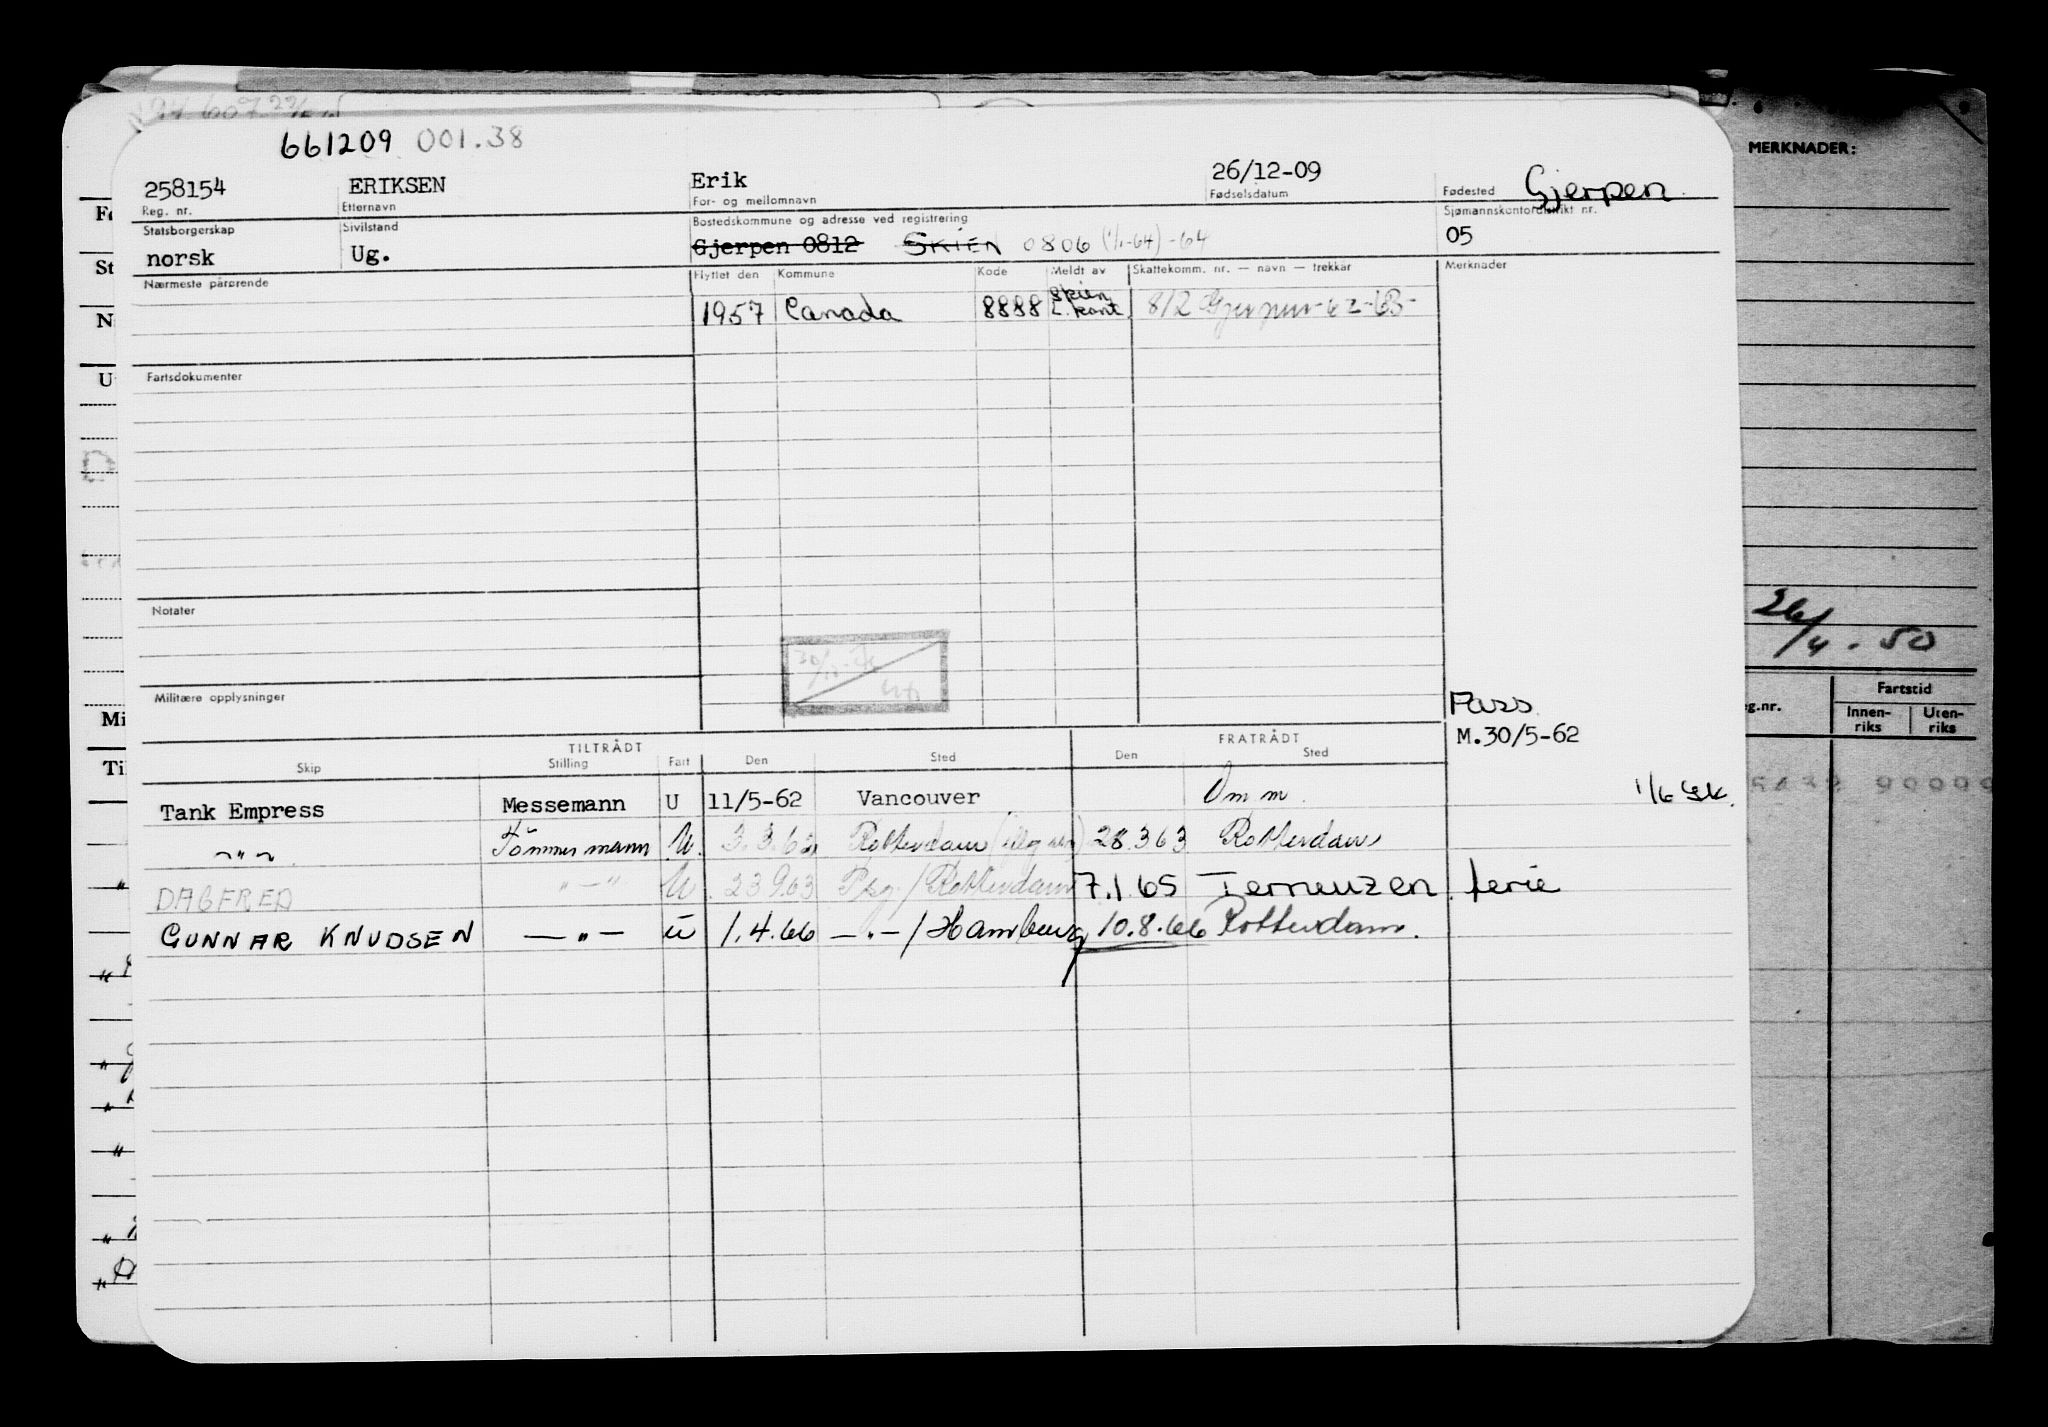 661209 001.38
258154 ERIKSEN Erik 26/12-09 Gjerpen
Reg. nr. Etternavn For- og mellomnavn Fødselsdatum Fødested
Statsborgerskap Sivilstand Bostedskommune og adresse ved registrering Sjømannskontordistrikt nr.
norsk Ug. Gjerpen 0812 SKIEN 0806 (1/1-64) -64 05
Nærmeste pårørende Flyttet den Kommune Kode Meldt av Skattekomm. nr. — navn — trekkår Merknader
1957 Canada 8888 Skien L. kont. 812 Gjerpen-62-63-
Fartsdokumenter
Notater
Militære opplysninger
Pass
M.30/5-62
TILTRÅDT FRATRÅDT
Skip Stilling Fart Den Sted Den Sted
Tank Empress Messemann U 11/5-62 Vancouver Om m. 1/6 Gk.
—"— Tömmermann U. 3.3.62 Rotterdam 28.3 63 Rotterdam
DAGFRED "—" U 23963 Psg./Rotterdam 7.1.65 Terneuzen ferie
GUNNAR KNUDSEN —"— U 1.4.66 —"—/Hamburg 10.8.66 Rotterdam.
MERKNADER:
26/4-50
Fartstid
eg.nr. Innen-riks Uten-riks